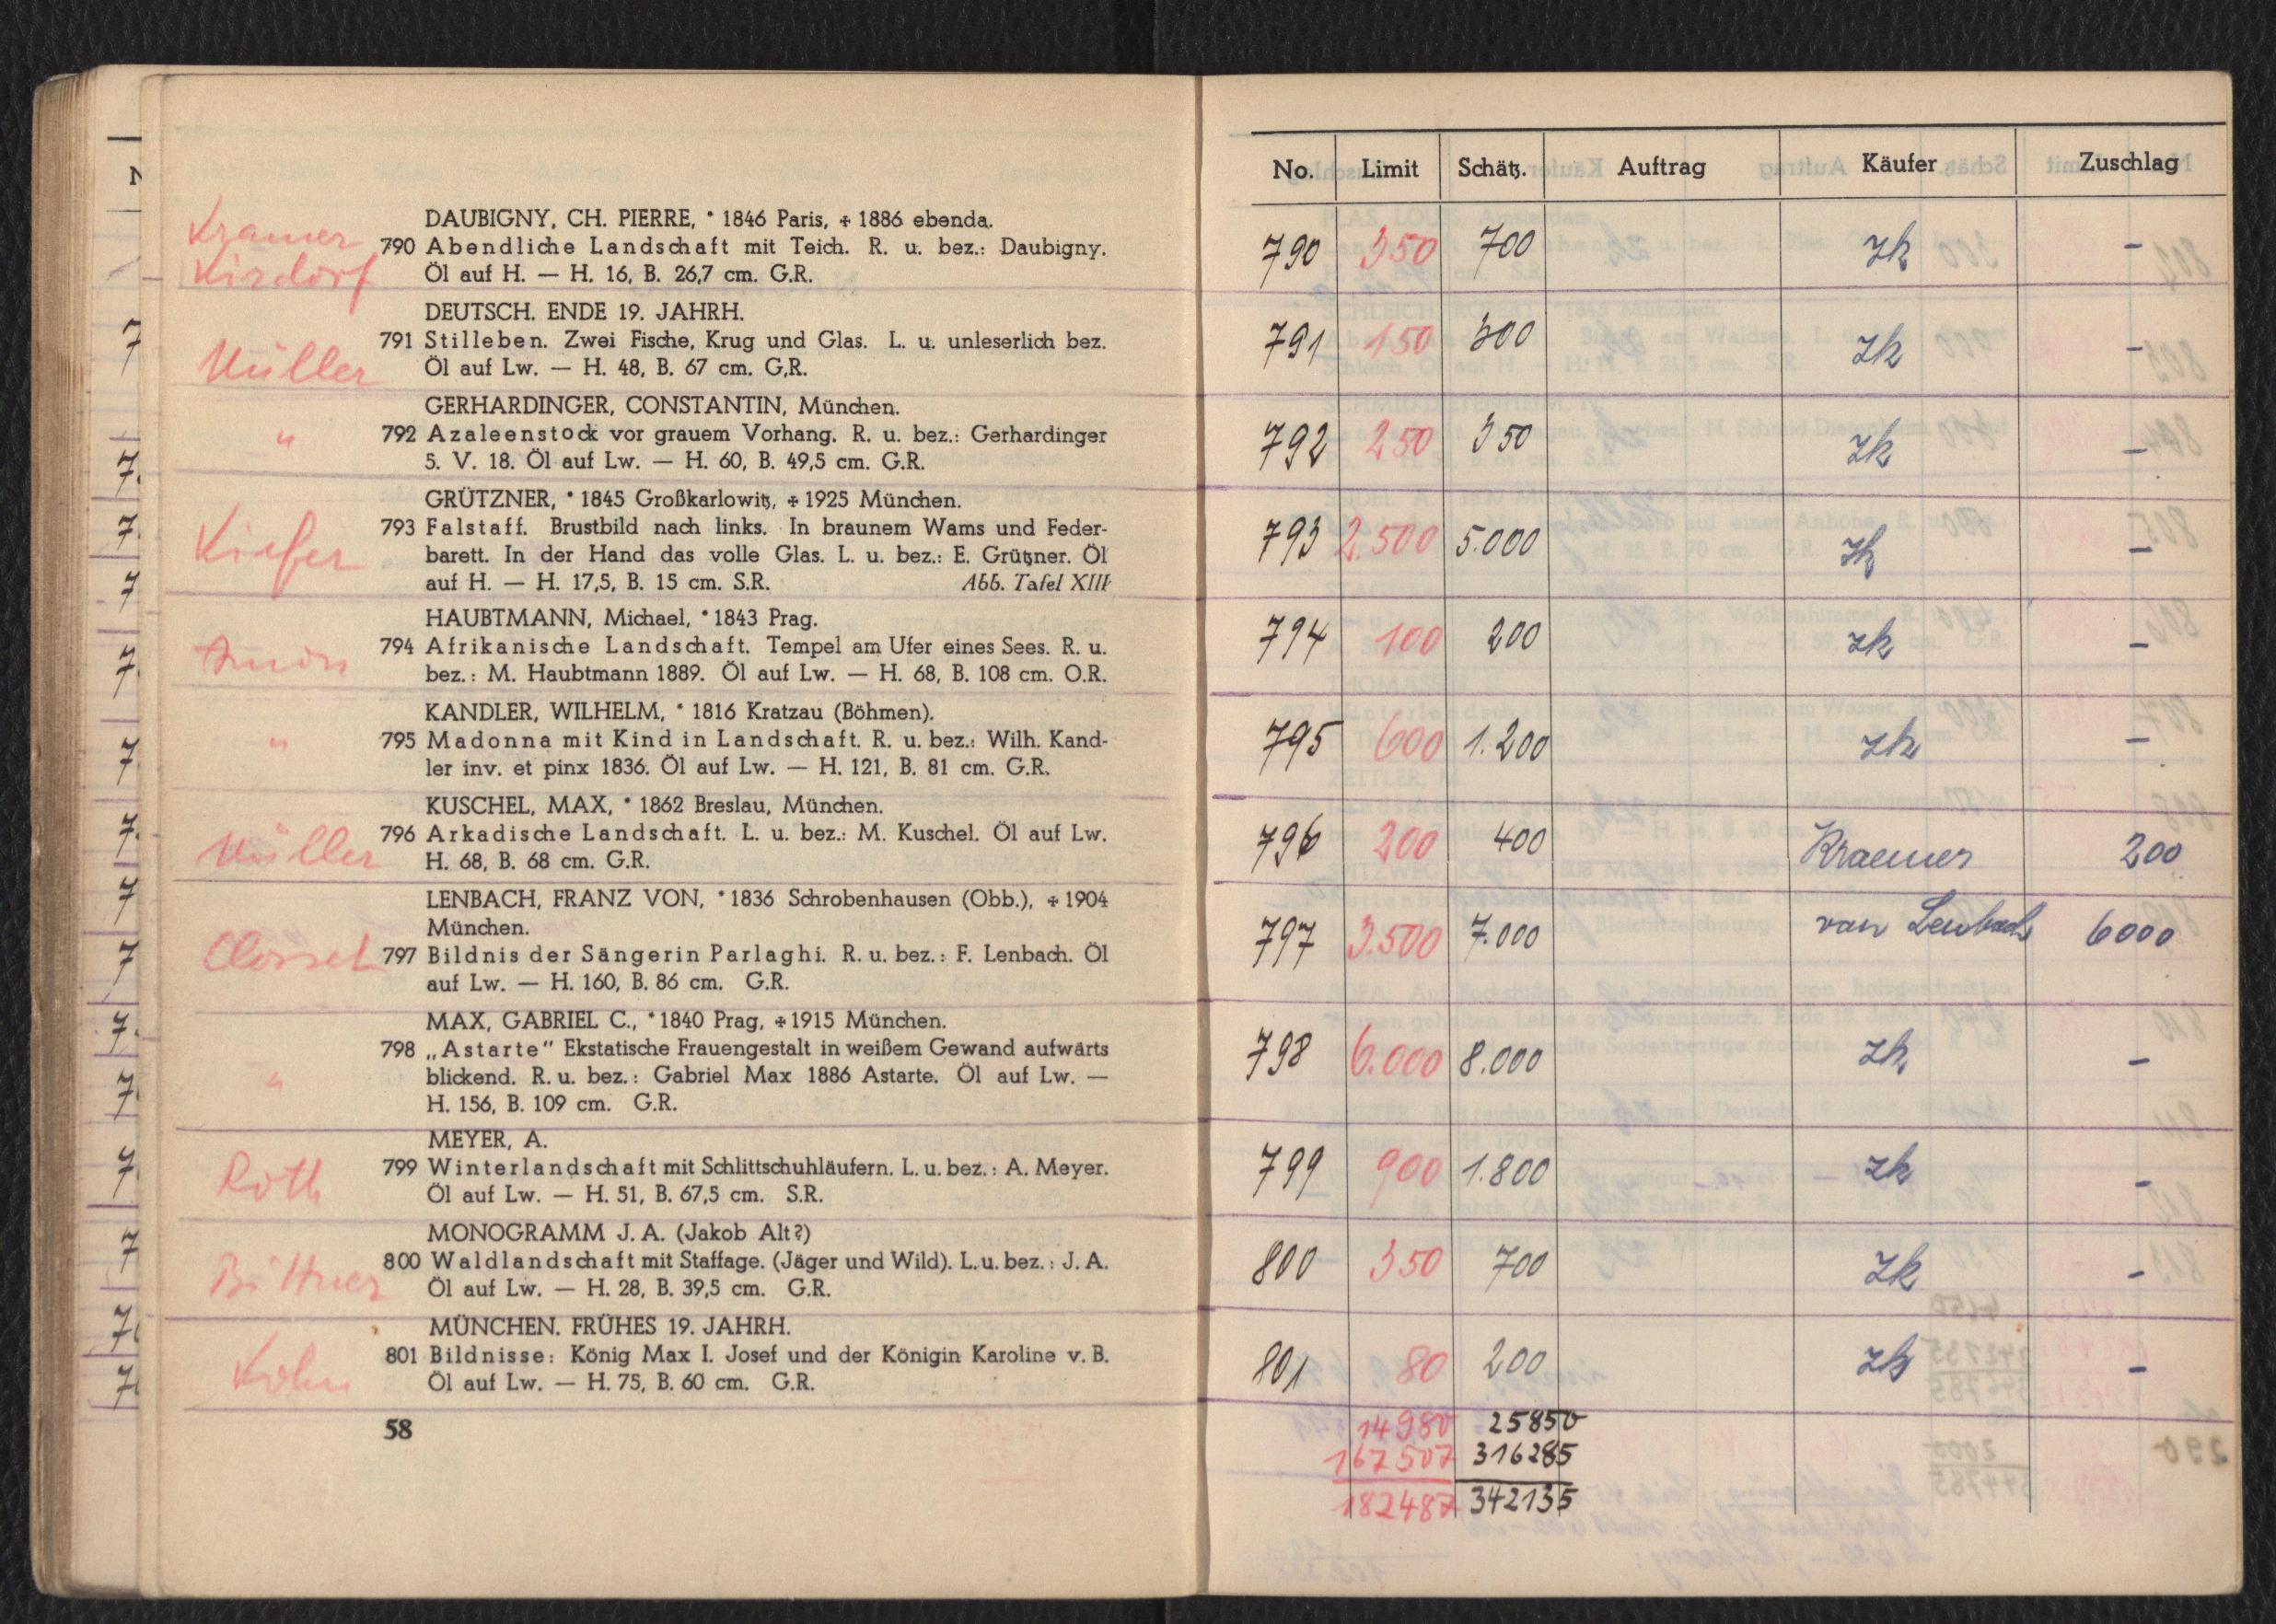 DAUBIGNY, CH. PIERRE, * 1846 Paris, + 1886 ebenda.
Kramer
790 Abendliche Landschaft mit Teich. R. u. bez.: Daubigny.
Kirdorf
Öl auf H. — H. 16, B. 26,7 cm. G.R.
DEUTSCH. ENDE 19. JAHRH.
791 Stilleben. Zwei Fische, Krug und Glas. L. u. unleserlich bez.
Müller
Öl auf Lw. — H. 48, B. 67 cm. G,R.
GERHARDINGER, CONSTANTIN, München.
" 792 Azaleenstock vor grauem Vorhang. R. u. bez.: Gerhardinger
5. V. 18. Öl auf Lw. — H. 60, B. 49,5 cm. G.R.
GRÜTZNER, * 1845 Großkarlowitz, + 1925 München.
793 Falstaff. Brustbild nach links. In braunem Wams und Feder-
Kiefer
barett. In der Hand das volle Glas. L. u. bez.: E. Grützner. Öl
auf H. — H. 17,5, B. 15 cm. S.R. Abb. Tafel XIII
HAUBTMANN, Michael, * 1843 Prag.
794 Afrikanische Landschaft. Tempel am Ufer eines Sees. R. u.
bez.: M. Haubtmann 1889. Öl auf Lw. — H. 68, B. 108 cm. O.R.
KANDLER, WILHELM, * 1816 Kratzau (Böhmen).
" 795 Madonna mit Kind in Landschaft. R. u. bez.: Wilh. Kand-
ler inv. et pinx 1836. Öl auf Lw. — H. 121, B. 81 cm. G.R.
KUSCHEL, MAX, * 1862 Breslau, München.
796 Arkadische Landschaft. L. u. bez.: M. Kuschel. Öl auf Lw.
Müller
H. 68, B. 68 cm. G.R.
LENBACH, FRANZ VON, * 1836 Schrobenhausen (Obb.), + 1904
München.
797 Bildnis der Sängerin Parlaghi. R. u. bez.: F. Lenbach. Öl
auf Lw. — H. 160, B. 86 cm. G.R.
MAX, GABRIEL C., * 1840 Prag, + 1915 München.
798 „Astarte" Ekstatische Frauengestalt in weißem Gewand aufwärts
" blickend. R. u. bez.: Gabriel Max 1886 Astarte. Öl auf Lw. —
H. 156, B. 109 cm. G.R.
MEYER, A.
799 Winterlandschaft mit Schlittschuhläufern. L. u. bez.: A. Meyer.
Roth
Öl auf Lw. — H. 51, B. 67,5 cm. S.R.
MONOGRAMM J. A. (Jakob Alt?)
800 Waldlandschaft mit Staffage. (Jäger und Wild). L. u. bez.: J. A.
Bittner
Öl auf Lw. — H. 28, B. 39,5 cm. G.R.
MÜNCHEN. FRÜHES 19. JAHRH.
801 Bildnisse: König Max I. Josef und der Königin Karoline v. B.
Kohn
Öl auf Lw. — H. 75, B. 60 cm. G.R.
58
No. Limit Schätz. Auftrag Käufer Zuschlag
790 350 700 zk –
791 150 300 zk –
792 250 350 zk –
793 2.500 5.000 zk –
794 100 200 zk –
795 600 1.200 zk –
796 200 400 Kraemer 200
797 3.500 7.000 van Lenbach 6000
798 6.000 8.000 zk –
799 900 1.800 zk –
800 350 700 zk –
801 80 200 zk –
14980 25850
167507 316285
182487 342135